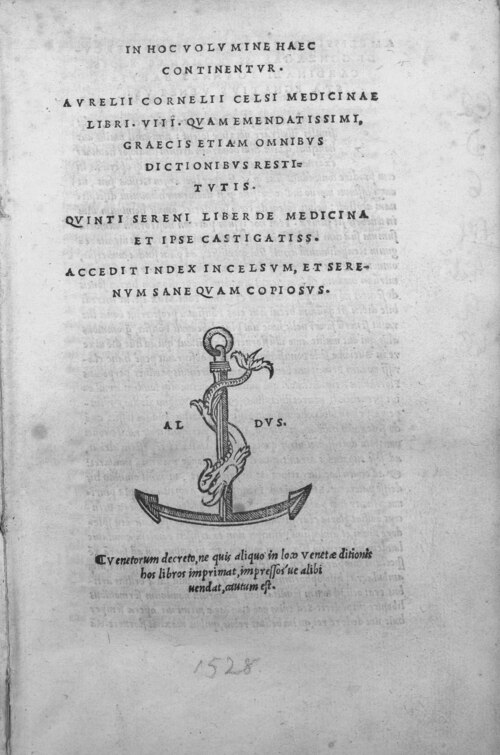 IN HOC VOLVMINE HAEC
CONTINENTVR.
AVRELII CORNELII CELSI MEDICINAE
LIBRI. VIII. QVAM EMENDATISSIMI,
GRAECIS ETIAM OMNIBVS
DICTIONIBVS RESTI-
TVTIS.
QVINTI SERENI LIBER DE MEDICINA
ET IPSE CASTIGATISS.
ACCEDIT INDEX IN CELSVM, ET SERE-
NVM SANE QVAM COPIOSVS.
AL DVS.
Venetorum decreto, ne quis aliquo in loco Venetæ ditionis
hos libros imprimat, impressos'ue alibi
uendat, cautum est.
1528